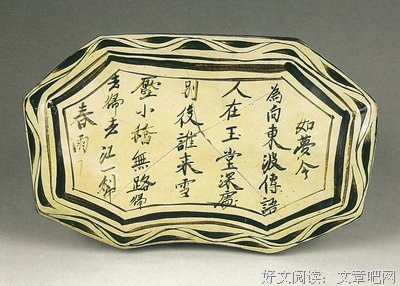 如夢令
為向東波傳語
人在玉堂深處
別後誰来雪
壓小橋無路歸
去歸去江一犁
春雨
好文阅读：文章吧网